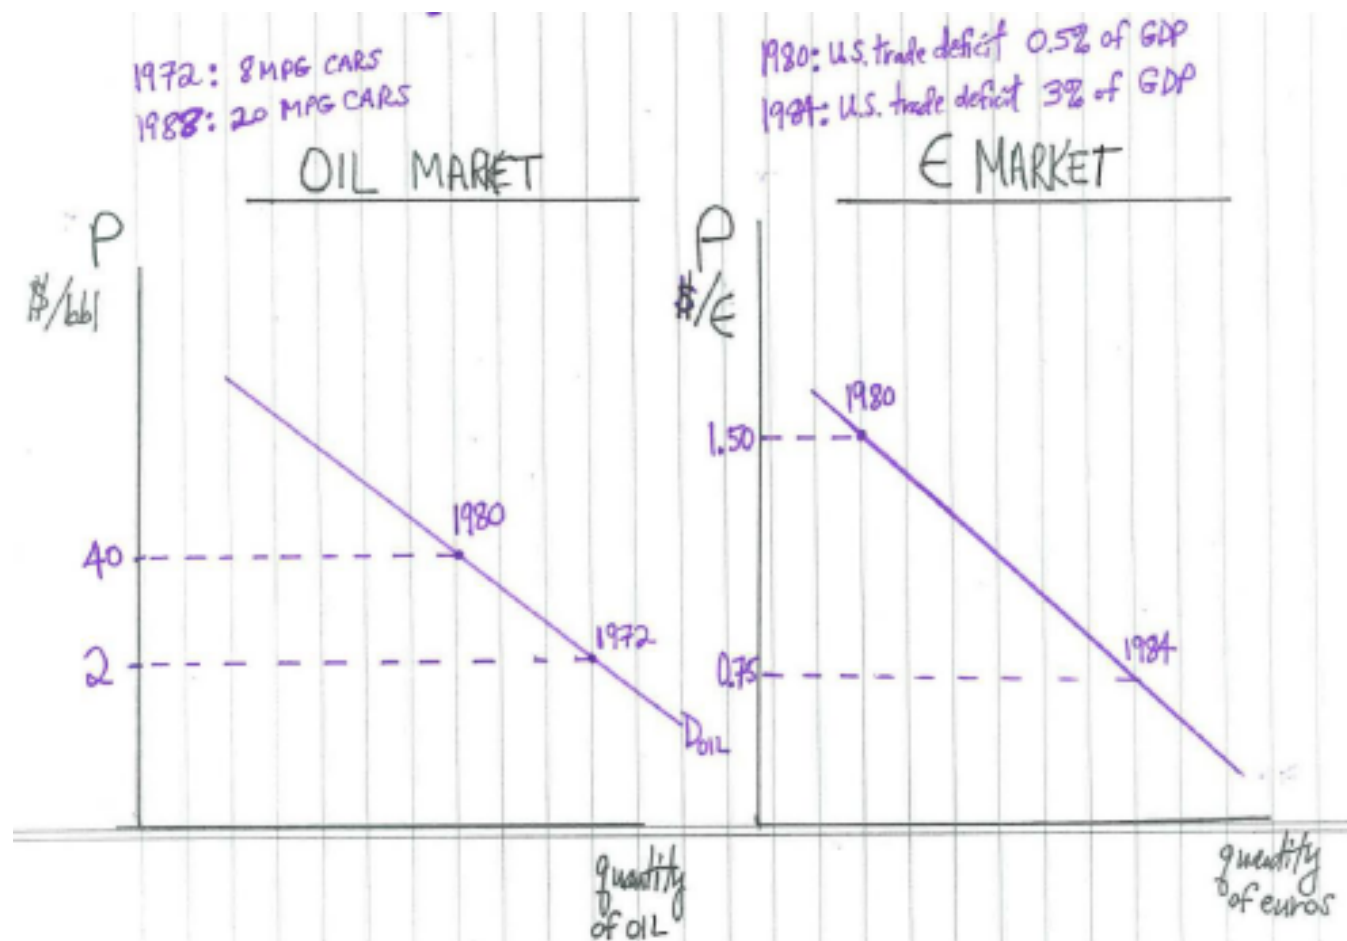 1972: 8 MPG CARS
1988: 20 MPG CARS
OIL MARKET
P
$/bbl
1980
40
1972
2
DOIL
quantity
of OIL
1980: U.S. trade deficit 0.5% of GDP
1984: U.S. trade deficit 3% of GDP
€ MARKET
P
$/€
1980
1.50
1984
0.75
quantity
of euros